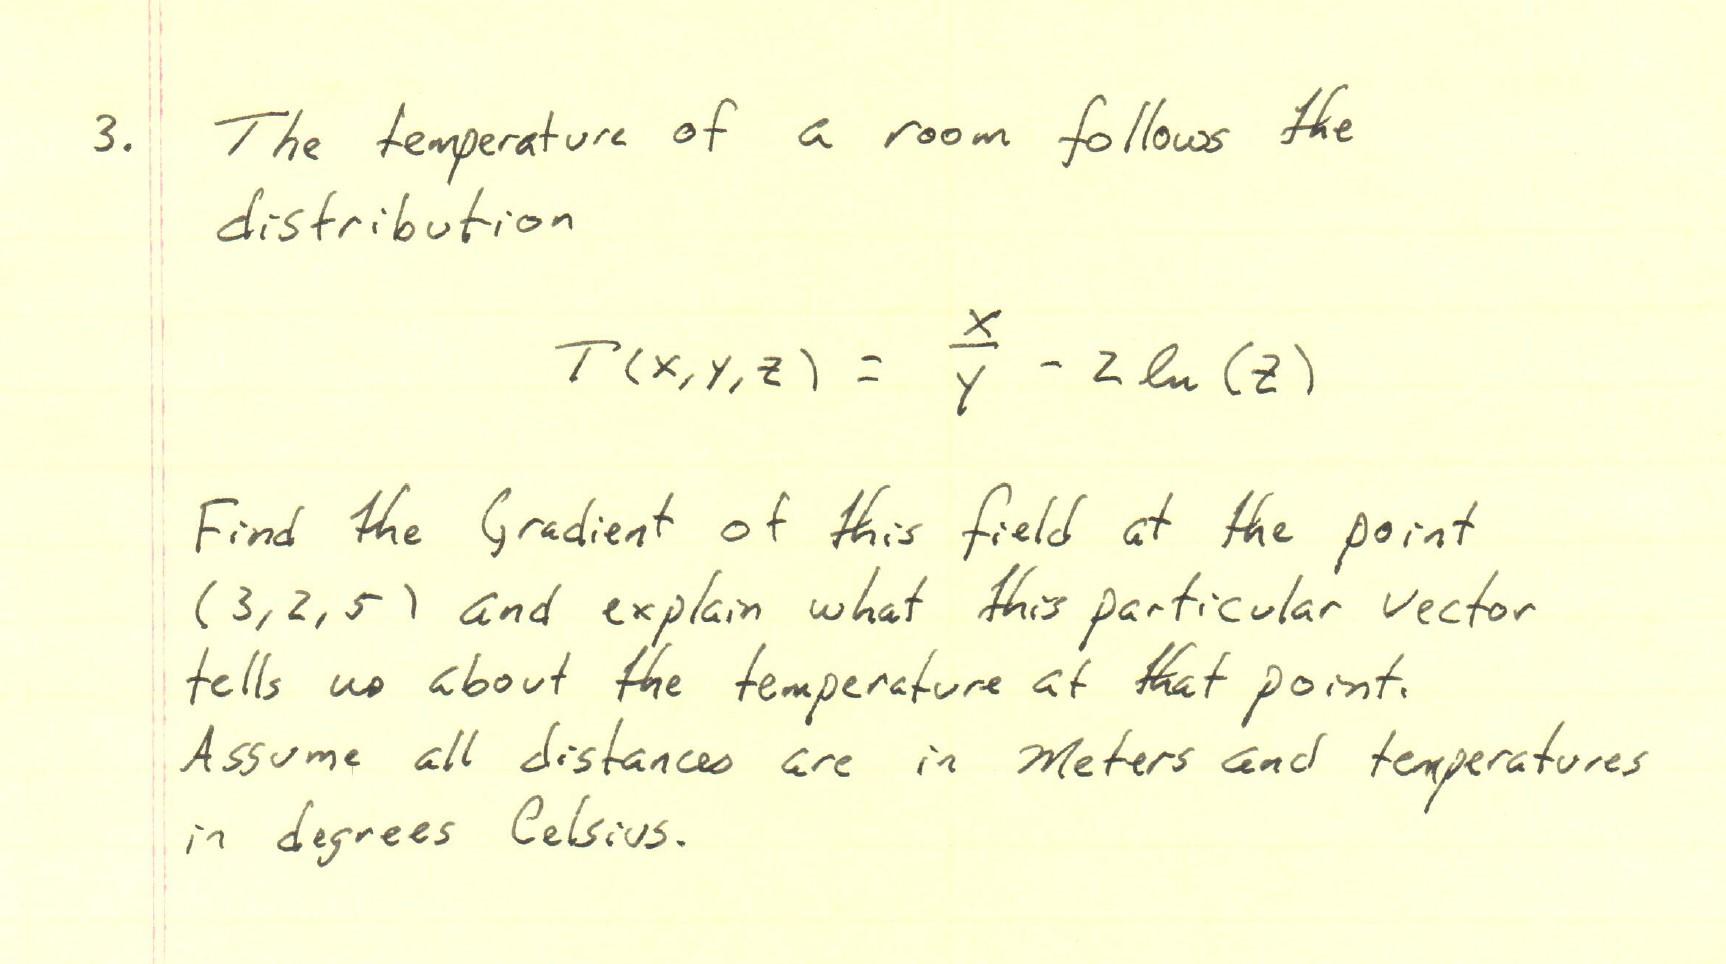 3. The temperature of a room follows the
distribution
T(x,y,z) = x/y - 2 ln (z)
Find the Gradient of this field at the point
(3,2,5) and explain what this particular vector
tells us about the temperature at that point.
Assume all distances are in meters and temperatures
in degrees Celsius.